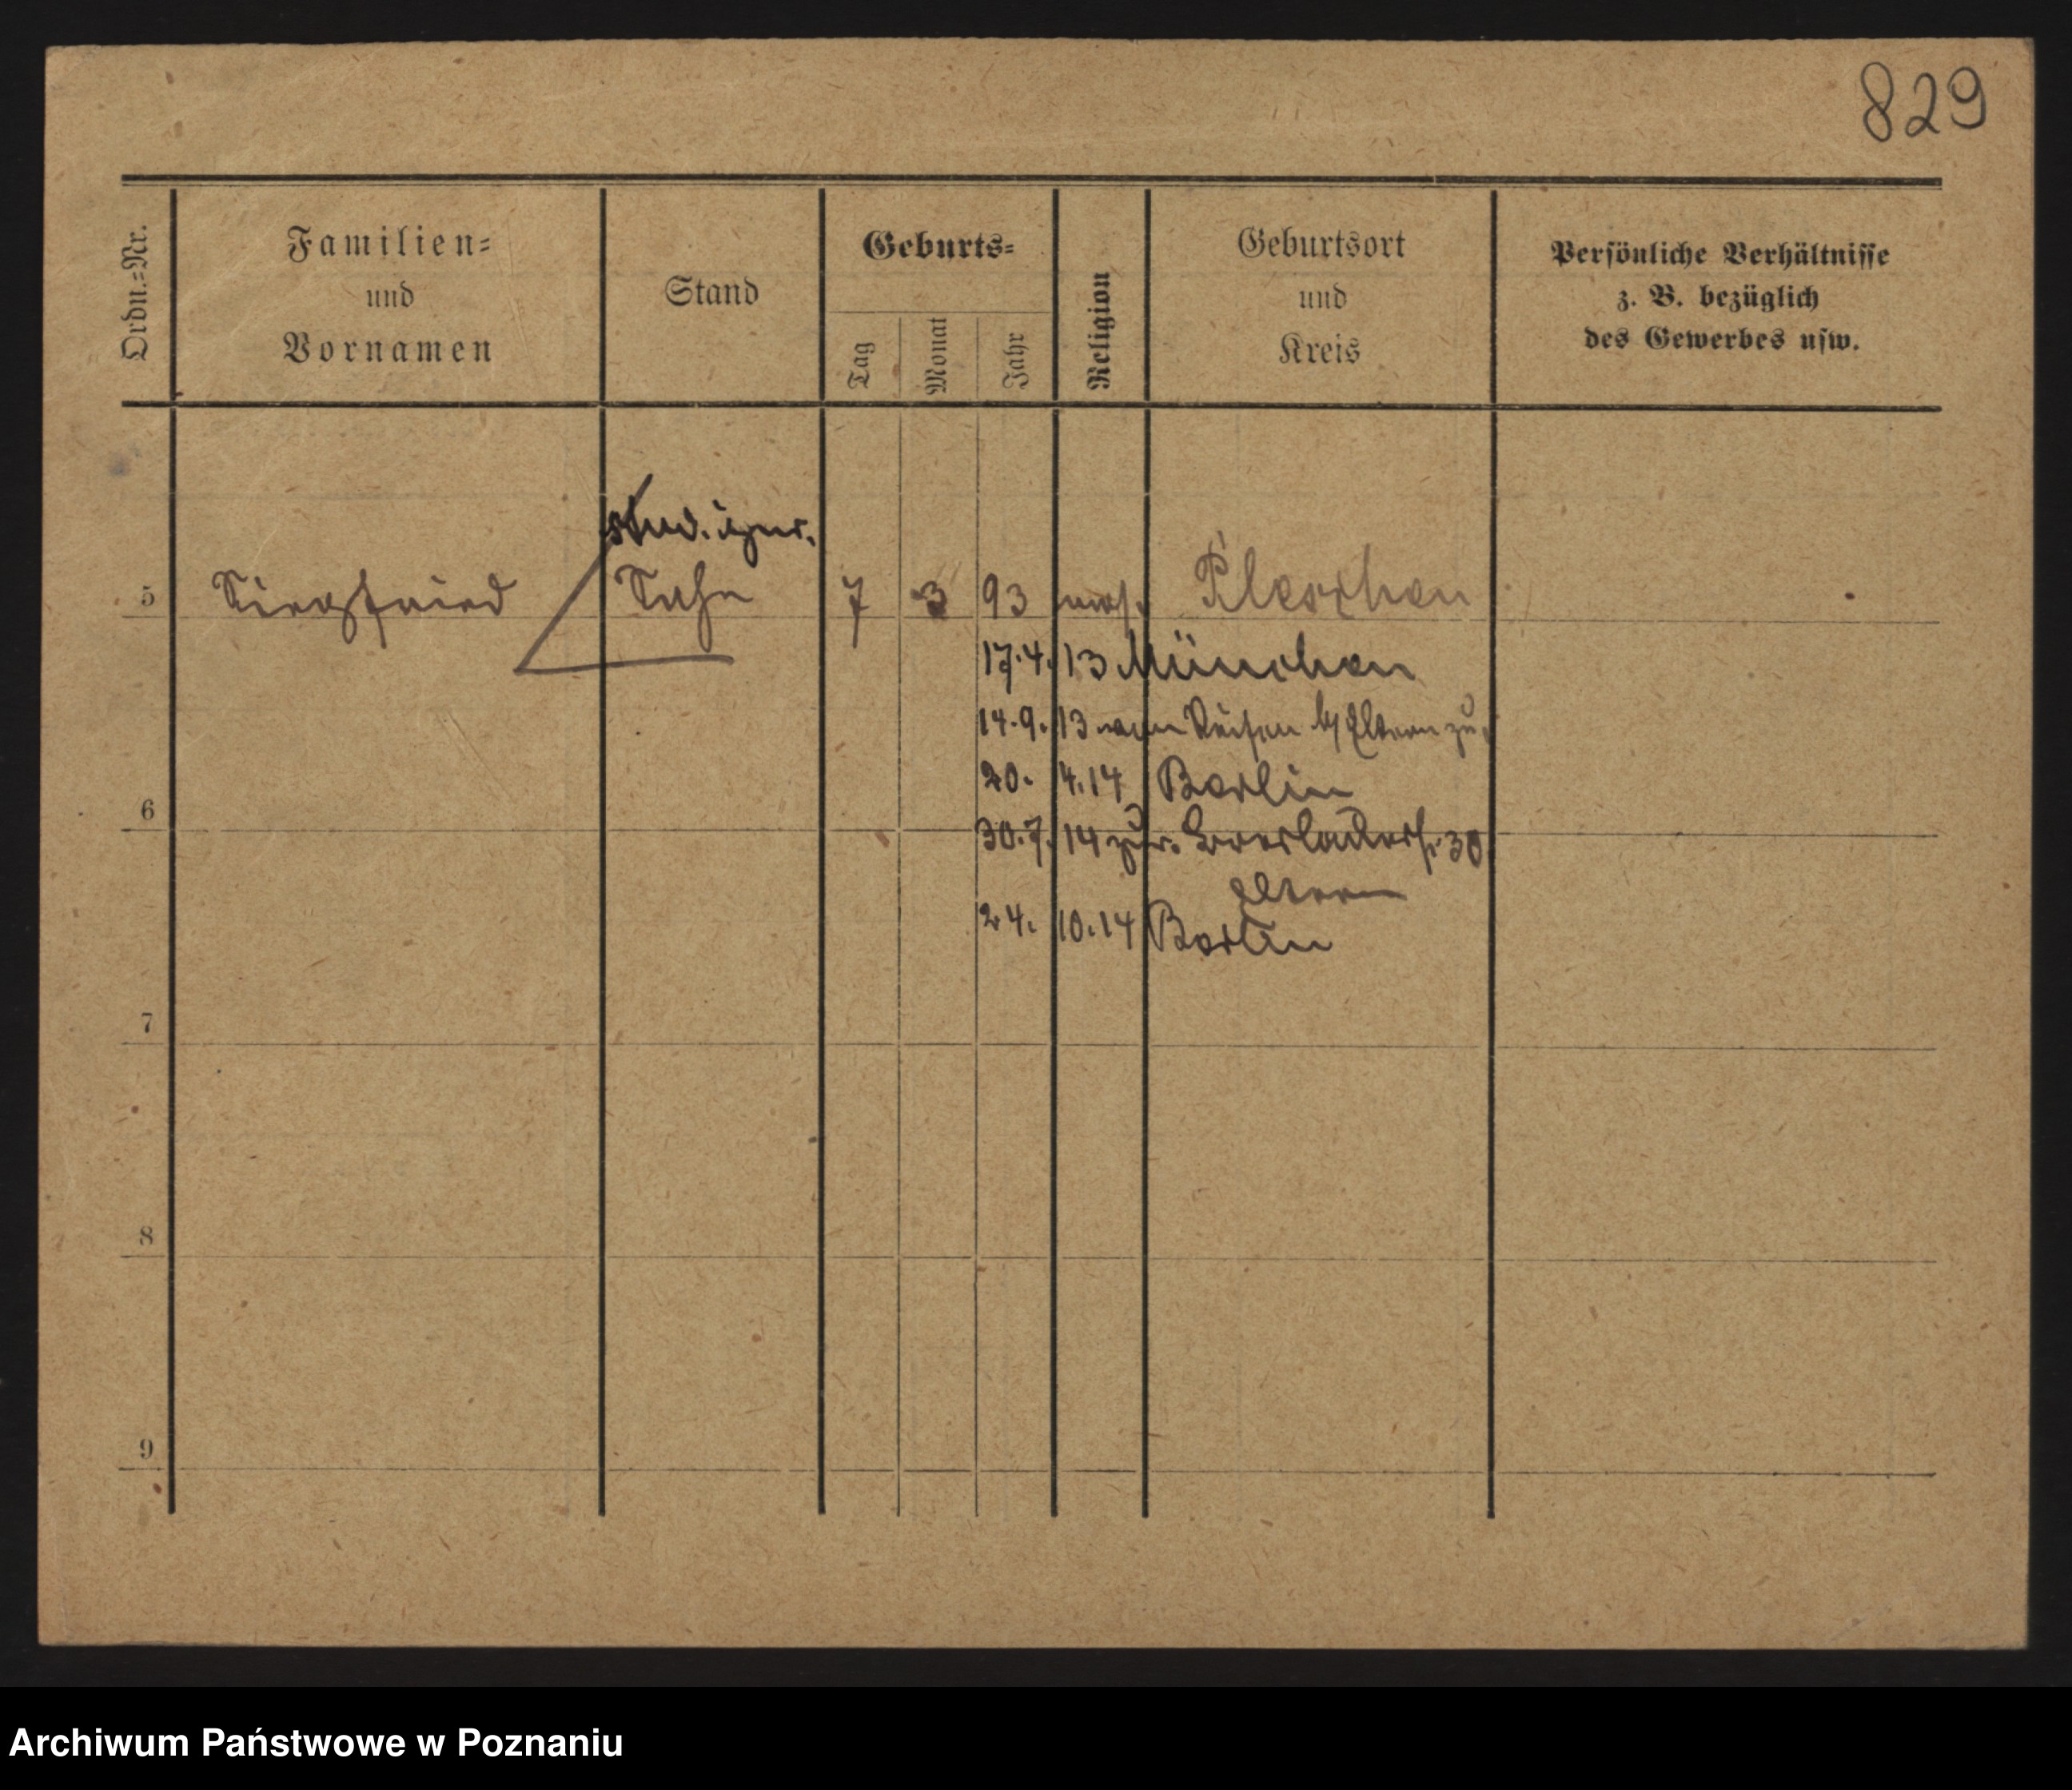 829
Ordn.=Nr.
Familien=
und
Vornamen
Stand
Geburts=
Tag
Monat
Jahr
Religion
Geburtsort
und
Kreis
Persönliche Verhältnisse
z. B. bezüglich
des Gewerbes usw.
stud.
5 Siegfried Sohn 7 3 93 mos. Pleschen
17.4.13 München
14.9.13 von Reisen b/ Eltern zu
20. 4.14 Berlin
6
30.7.14 zur. 30
Eltern
24. 10.14 Berlin
7
8
9
Archiwum Państwowe w Poznaniu